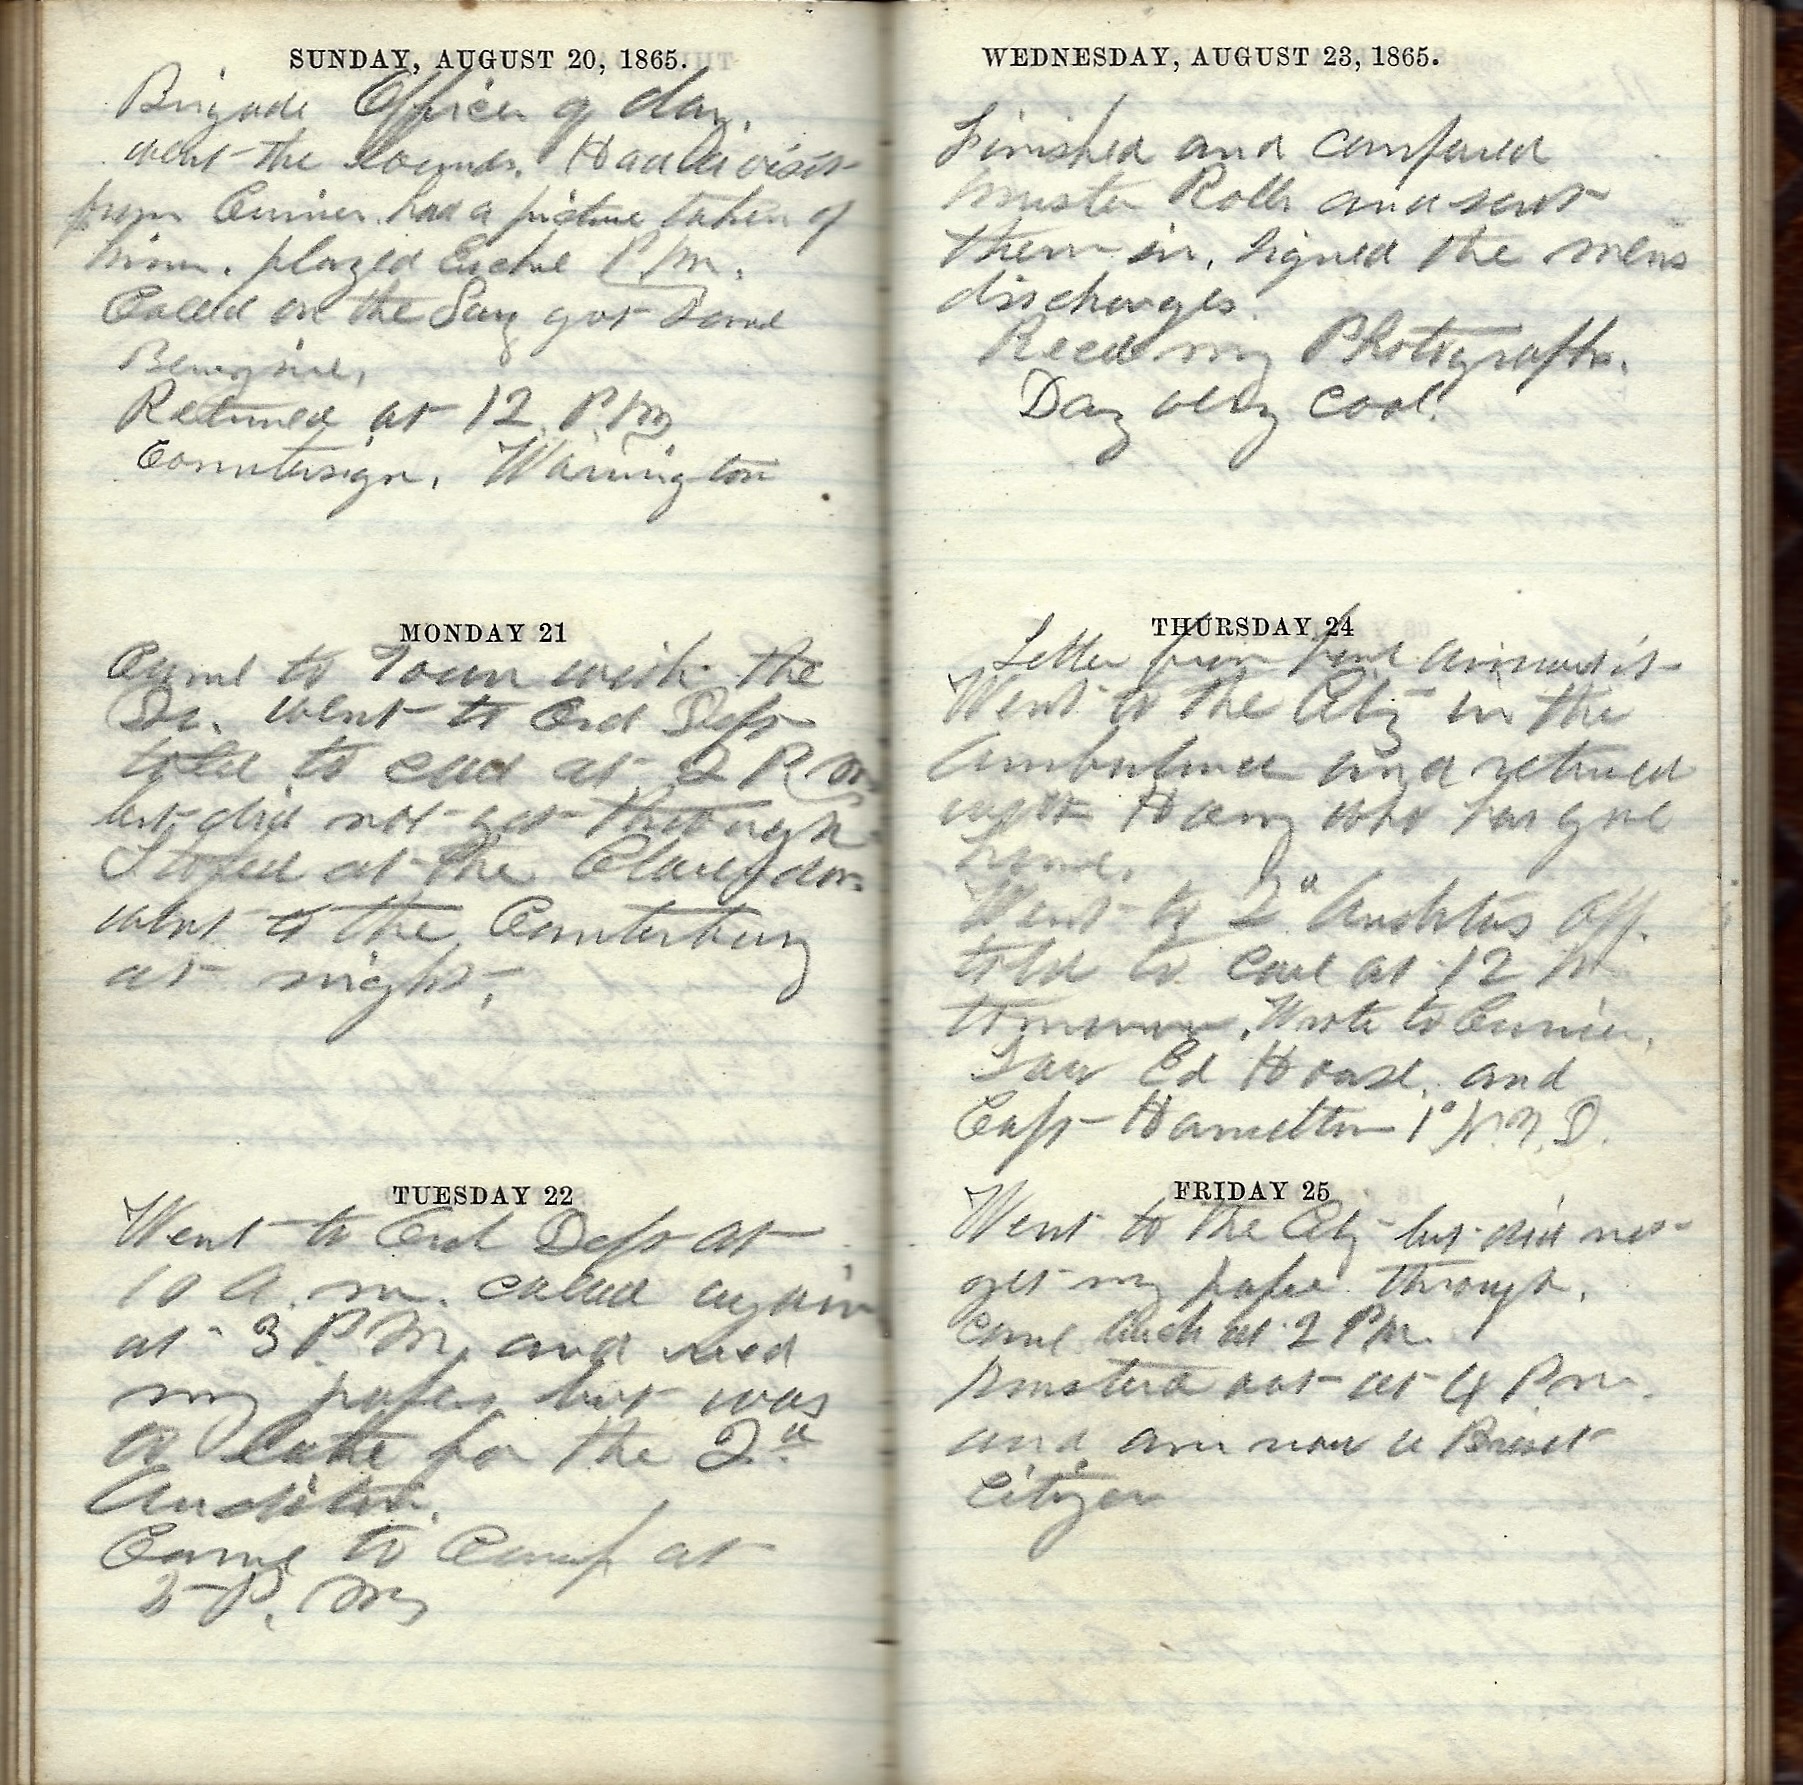 SUNDAY, AUGUST 20, 1865.
Brigade Officer of day.
went the rounds. Had a visit
from Currier. had a picture taken of
him. played Euchre P.M.
Called on the Surg got some
Returned at 12 P.M
Countersign. Warrington
MONDAY 21
Came to Town with the
Dr. went to Ord Dept
told to call at 2 P.M
but did not get through
Stoped at the Clarendon
went to the Canterbury
at night.
TUESDAY 22
Went to Ord Dept at
10 A.M. called again
at 3 P.M. and recd
my papers but was
to late for the 2d
Auditor.
Came to Camp at
5 P.M
WEDNESDAY, AUGUST 23, 1865.
Finished and compared
Muster Rolls and sent
them in. Signed the mens
discharges.
Recd my Photografhs.
Day very cool.
THURSDAY 24
Letter from
Went to the City in the
Ambulance and returned
with Harry who has gone
home.
Went to 2d Auditors Off.
told to call at 12 M
tomorrow. Wrote to Currier.
Saw Ed House. and
Capt Hamilton 1st
FRIDAY 25
Went to the City but did not
get my paper through.
came back at 2 PM.
Mustered out at 4 P.M.
and am now a Brevet
Citizen